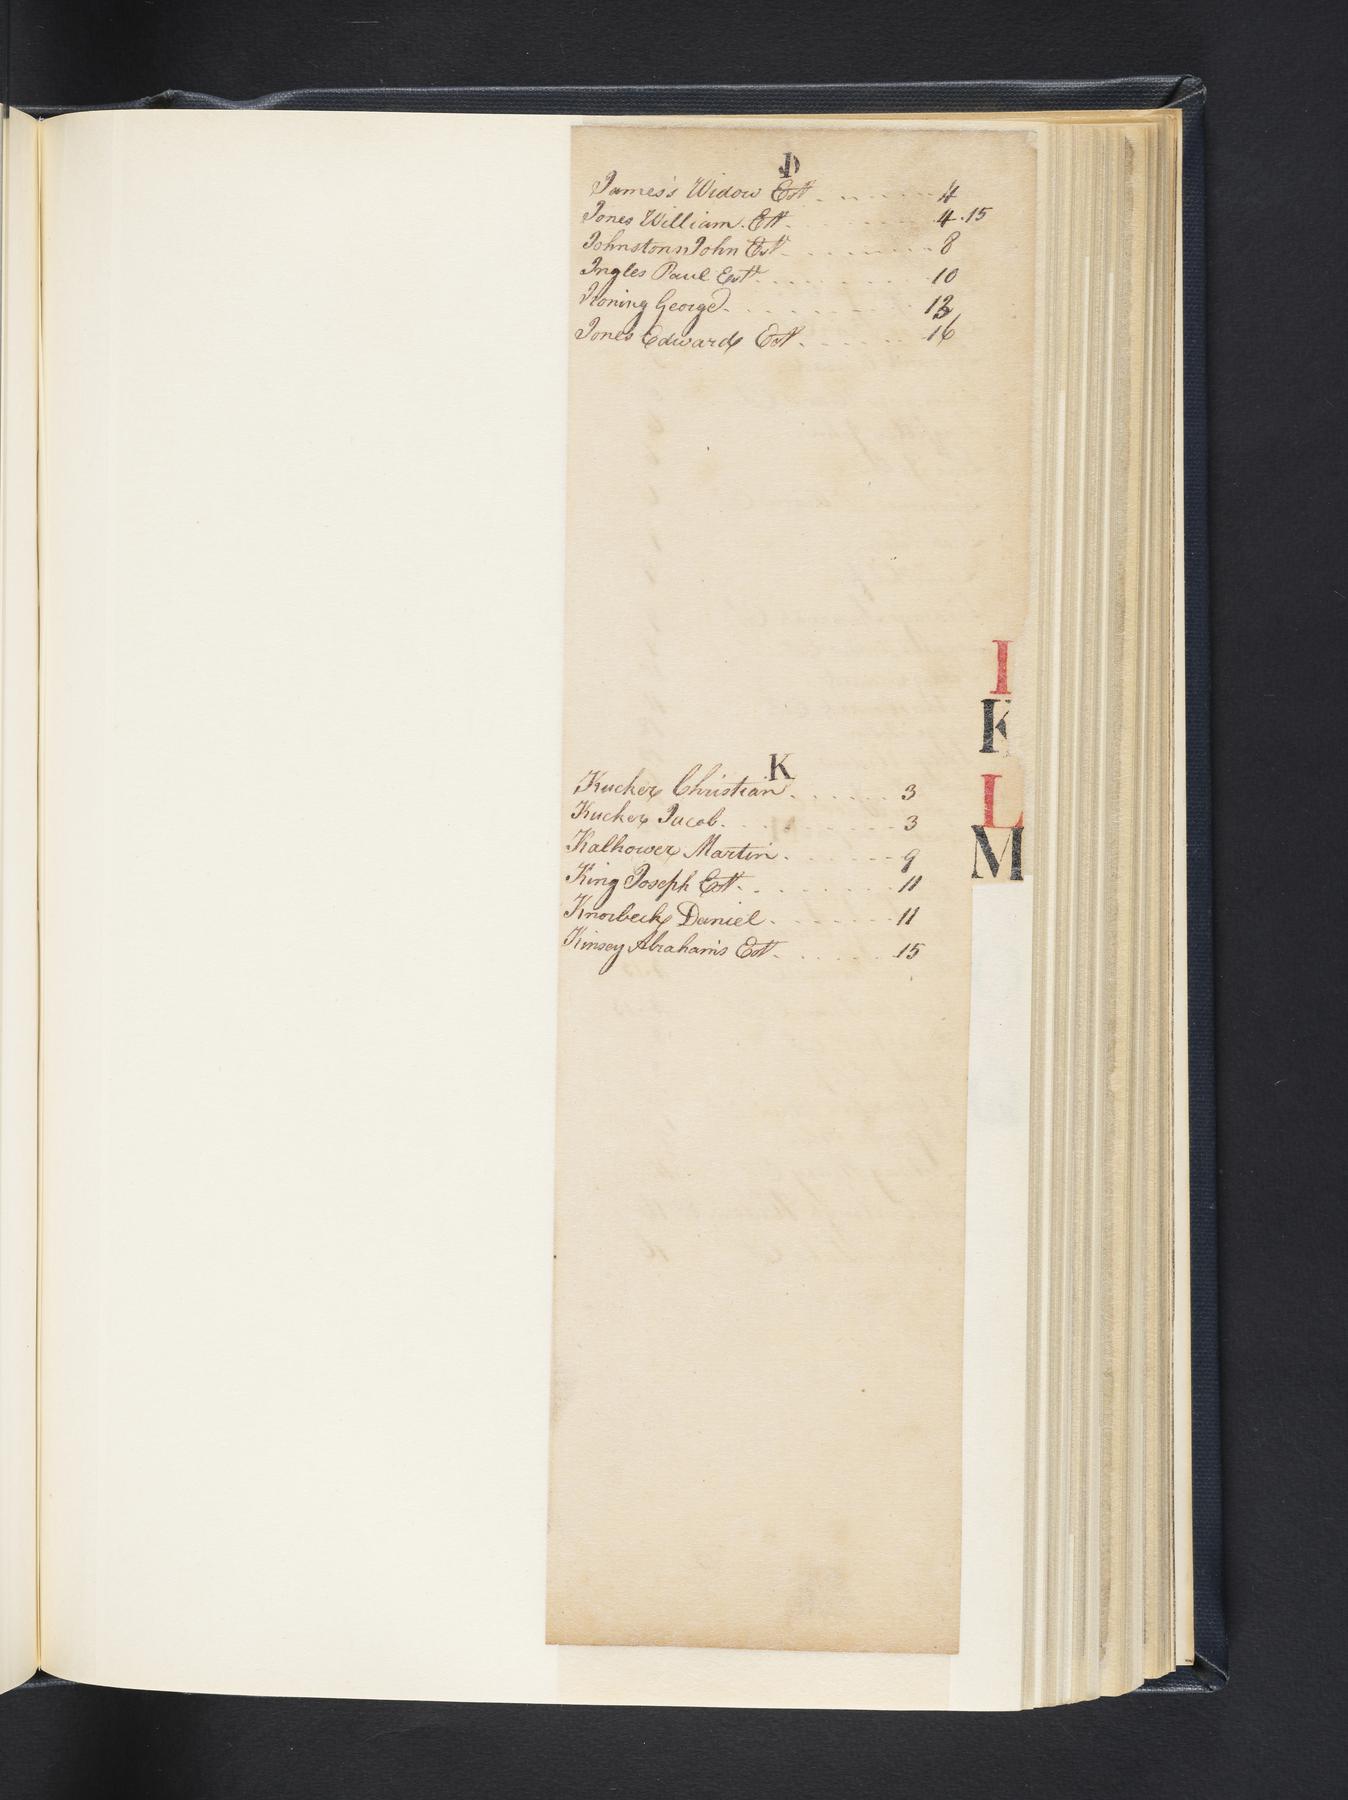 J
James's Widow Est. . . . . . . . 4
Jones William. Est. . . . . . . . 4.15
Johnstonn John Est. . . . . . . . 8
Ingles Paul Est. . . . . . . . 10
George. . . . . . . . 13
Jones Edward Est. . . . . . . 16
I
K
L
M
K
Kucker Christian. . . . . . . 3
Kucker Jacob. . . . . . . . . 3
Kalhower Martin. . . . . . . 9
King Joseph Est. . . . . . . . 11
Knorbeck Daniel. . . . . . . 11
Kinsey Abraham's Est. . . . . . 15